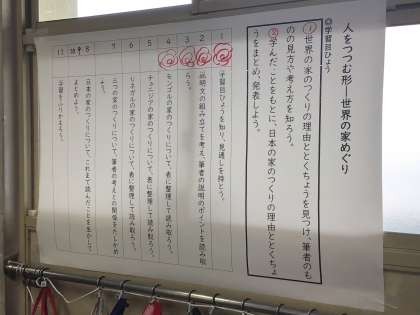 人をつつむ形―世界の家めぐり
◎学習目ひょう
①世界の家のつくりの理由ととくちょうを見つけ、筆者のも
のの見方や考え方を知ろう。
②学んだことをもとに、日本の家のつくりの理由ととくちょ
うをまとめ、発表しよう。
1 学習目ひょうを知り、見通しを持とう。
2 説明文の組み立てを考え、筆者の説明のポイントを読み取
ろう。
3
4 モンゴルの家のつくりについて、表に整理して読み取ろう。
5 チュニジアの家のつくりについて、表に整理して読み取ろう。
6 セネガルの家のつくりについて、表に整理して読み取ろう。
7 三つの家のつくりについて、筆者の考えとの関係をたしかめ
よう。
8 9 10 日本の家のつくりについて、これまで読んだことを生かして
まとめよう。
11 学習をふりかえろう。